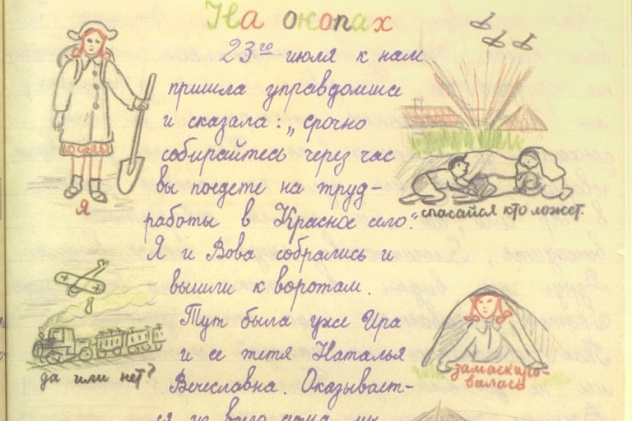 На окопах
23го июля к нам
пришла управдомша
и сказала: „срочно
собирайтесь через час
вы поедете на труд-
работы в Красное село."
Я и Вова собрались и
вышли к воротам.
Тут была уже Ира
и ее тетя Наталья
Вечеславна. Оказывает-
ся
Я
спасайся кто может.
да или нет?
замаскиро-
вилась